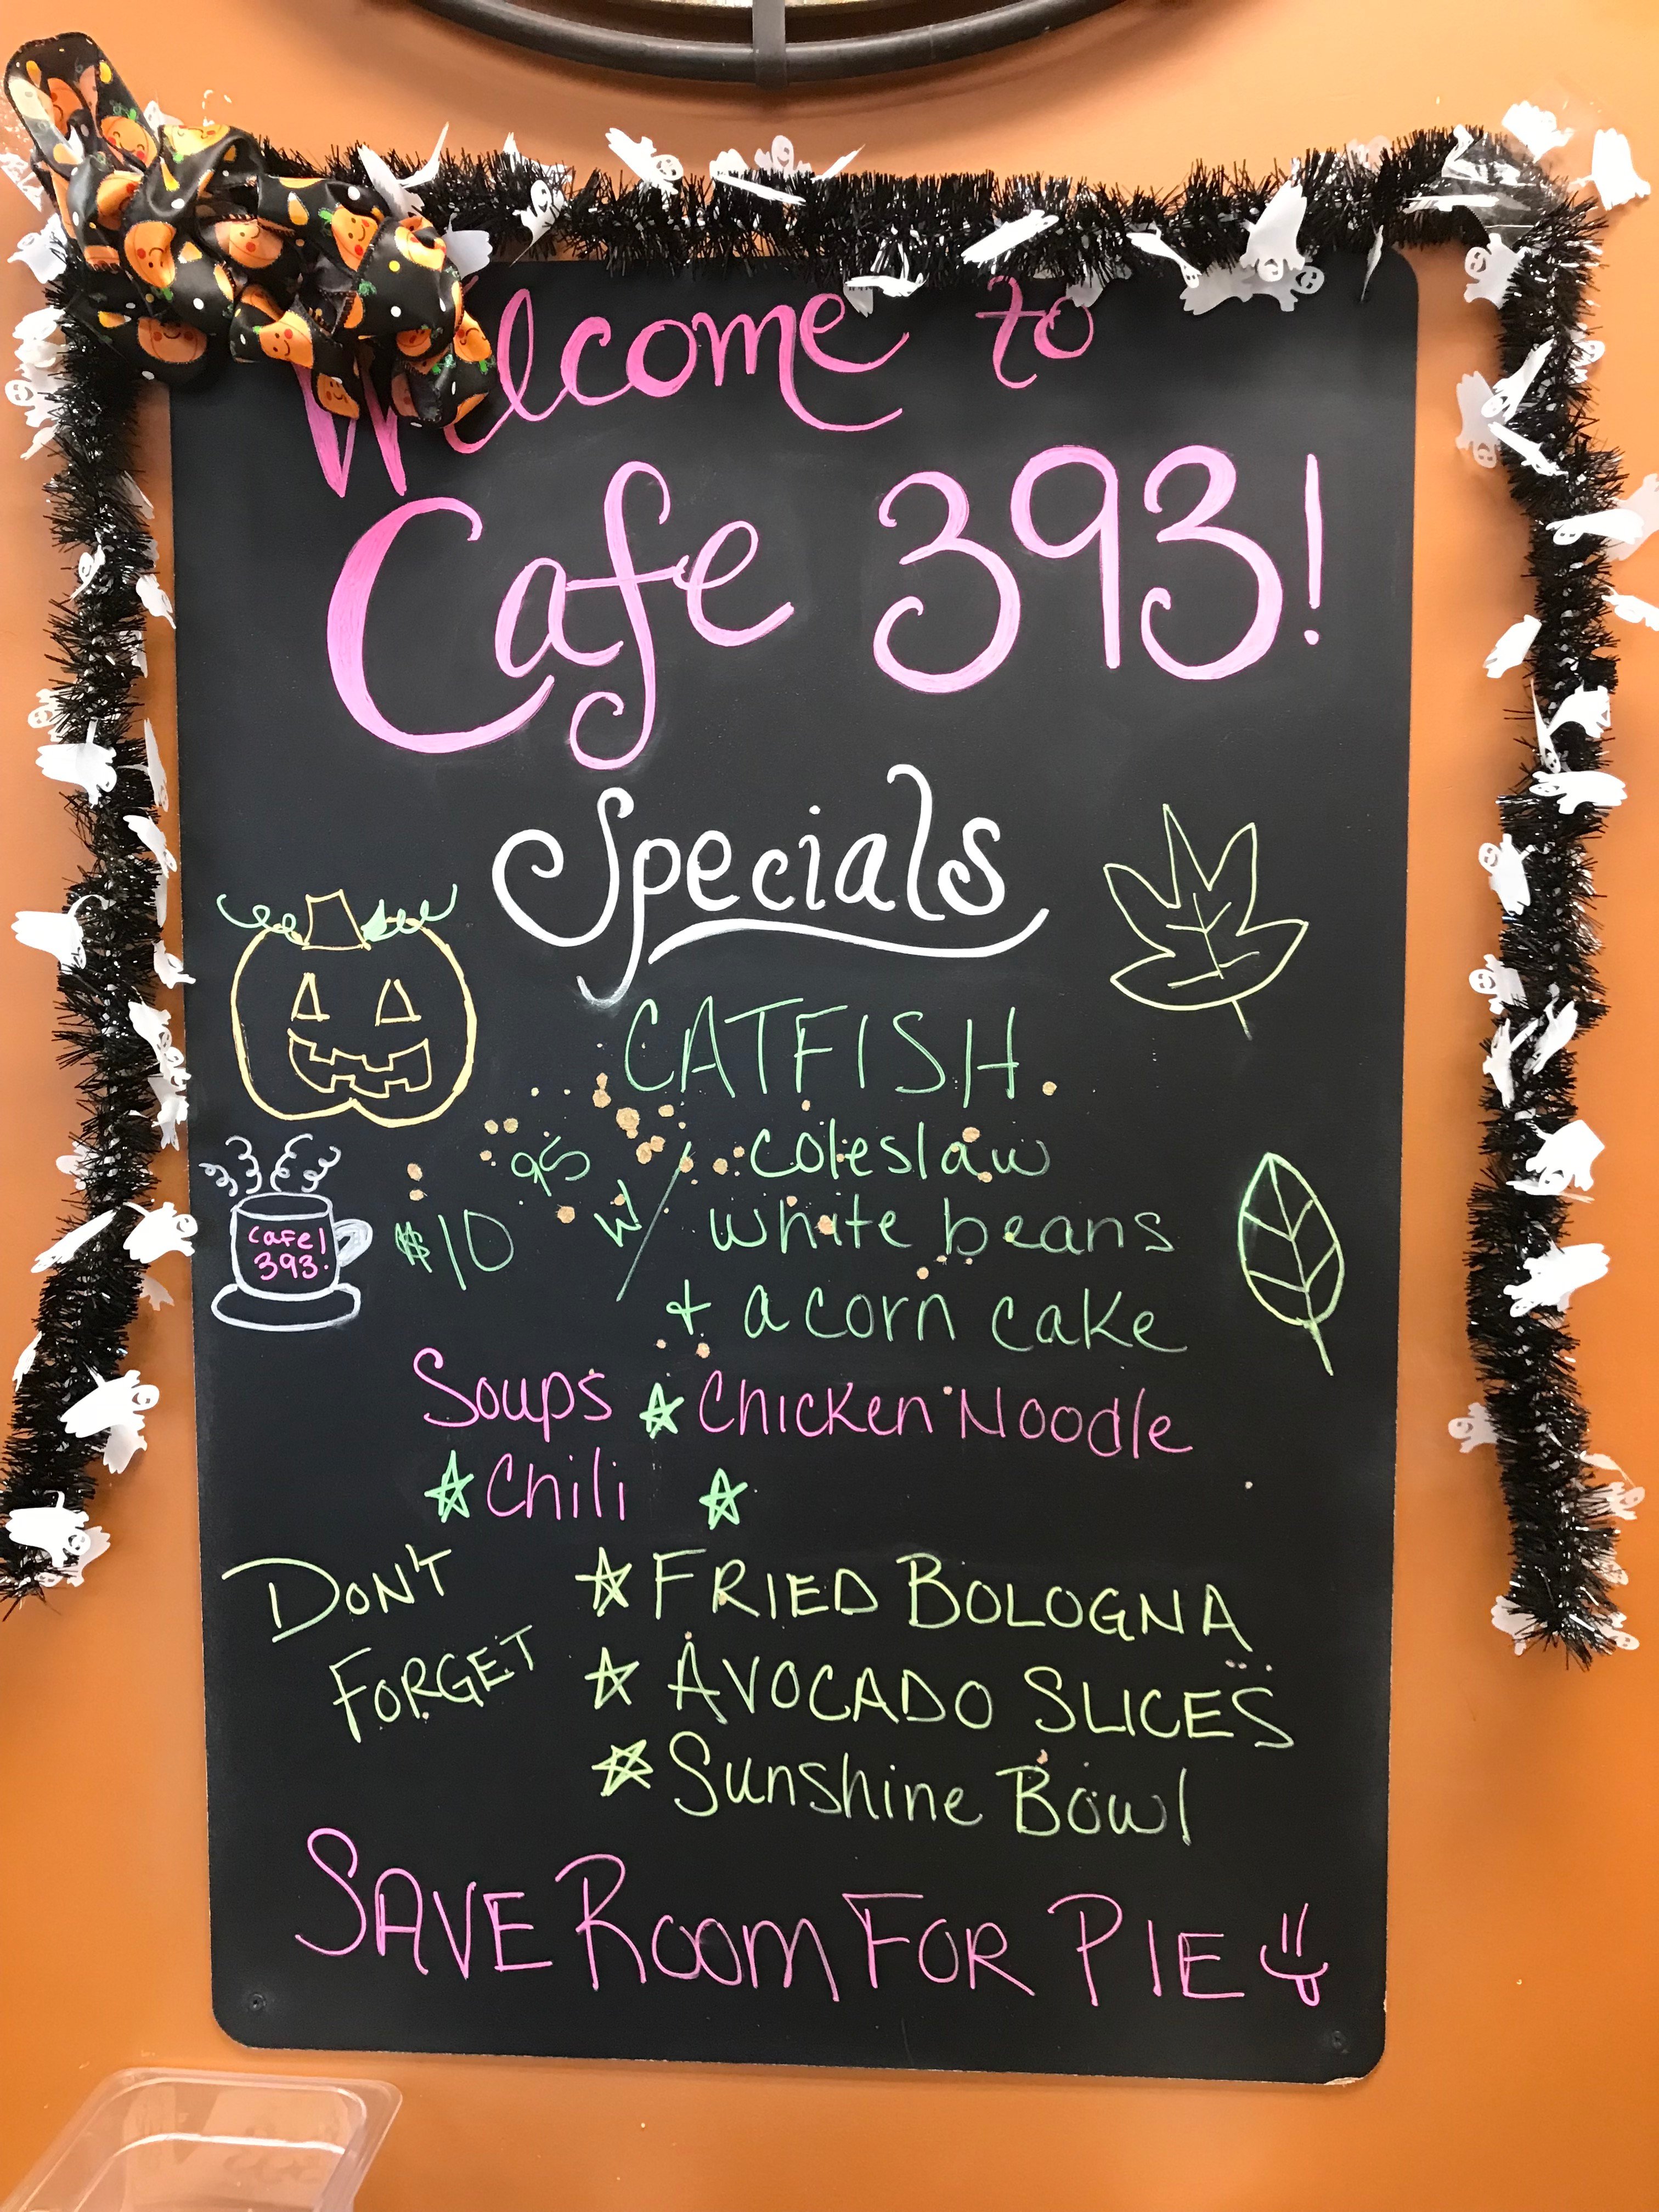 Welcome to
Cafe 393!
Specials
CATFISH
$10 95 w/ coleslaw
white beans
+ a corn cake
cafe!
393.
Soups ☆ Chicken Noodle
☆ Chili ☆
DON'T
FORGET
☆ FRIED BOLOGNA
☆ AVOCADO SLICES
☆ Sunshine Bowl
SAVE ROOM FOR PIE